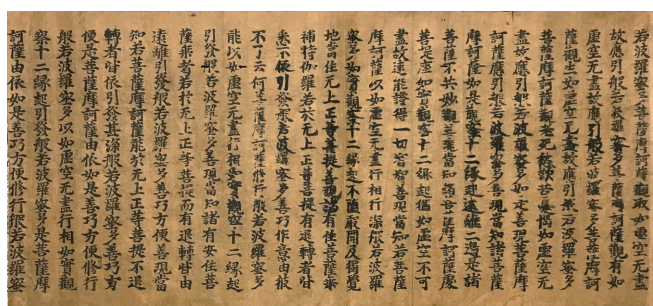 若波羅蜜多菩薩摩訶薩觀取如虛空无盡
故應引般若波羅蜜多菩薩摩訶薩觀有如
虛空无盡故應引般若波羅蜜多菩薩摩訶
薩觀生如虛空无盡故應引般若波羅蜜多
菩薩摩訶薩觀老死愁歎苦憂惱如虛空无
盡故應引般若波羅蜜多如是善現菩薩摩
訶薩應引般若波羅蜜多善現當知諸菩薩
摩訶薩如是觀察十二緣起遠離二邊是諸
菩薩不共妙觀善現當知諸菩薩摩訶薩處
菩提座如實觀察十二緣起猶如虛空不可
盡故速能證得一切智智善現當知若菩薩
摩訶薩以如虛空无盡行相行深般若波羅
蜜多如實觀察十二緣起不墮聲聞及獨覺
地當住无上正等菩提善現諸有住菩薩乘
補特伽羅若於无上正等菩提有退轉者皆
悉不依引發般若波羅蜜多善巧作意由彼
不了云何菩薩摩訶薩修行般若波羅蜜多
能以如虛空无盡行相如實觀察十二緣起
引發般若波羅蜜多善現當知諸有安住菩
薩乘者若於无上正等菩提而有退轉皆由
遠離引發般若波羅蜜多善巧方便善現當
知若菩薩摩訶薩能於无上正等菩提不退
轉者皆依引發甚深般若波羅蜜多善巧方
便是菩薩摩訶薩由依如是善巧方便修行
般若波羅蜜多以如虛空无盡行相如實觀
察十二緣起引發般若波羅蜜多是菩薩摩
訶薩由依如是善巧方便修行般若波羅蜜